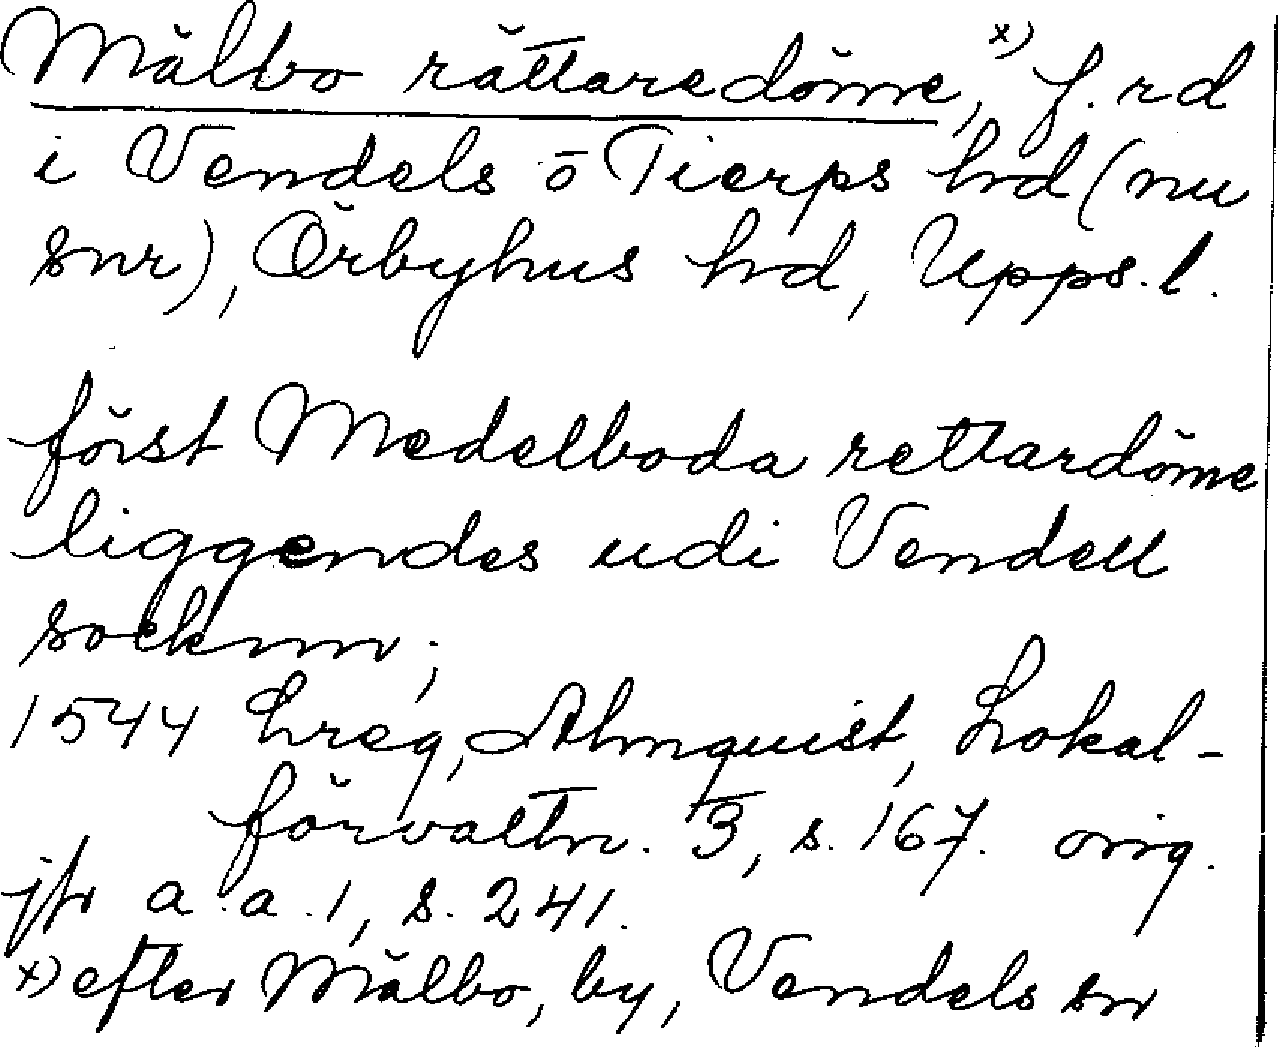 Mälbo rättaredöme, x) f. rd
i Vendels o Tierps hd (nu
snr), Örbyhus hd, Upps. l.
först Medelboda rettardöme
liggendes udi Vendell
socknn;
1544 hreg, Almquist, Lokal-
förvaltn. 3, s. 167. orig.
jfr a.a. 1, s. 241.
x) efter Mälbo, by, Vendels sn